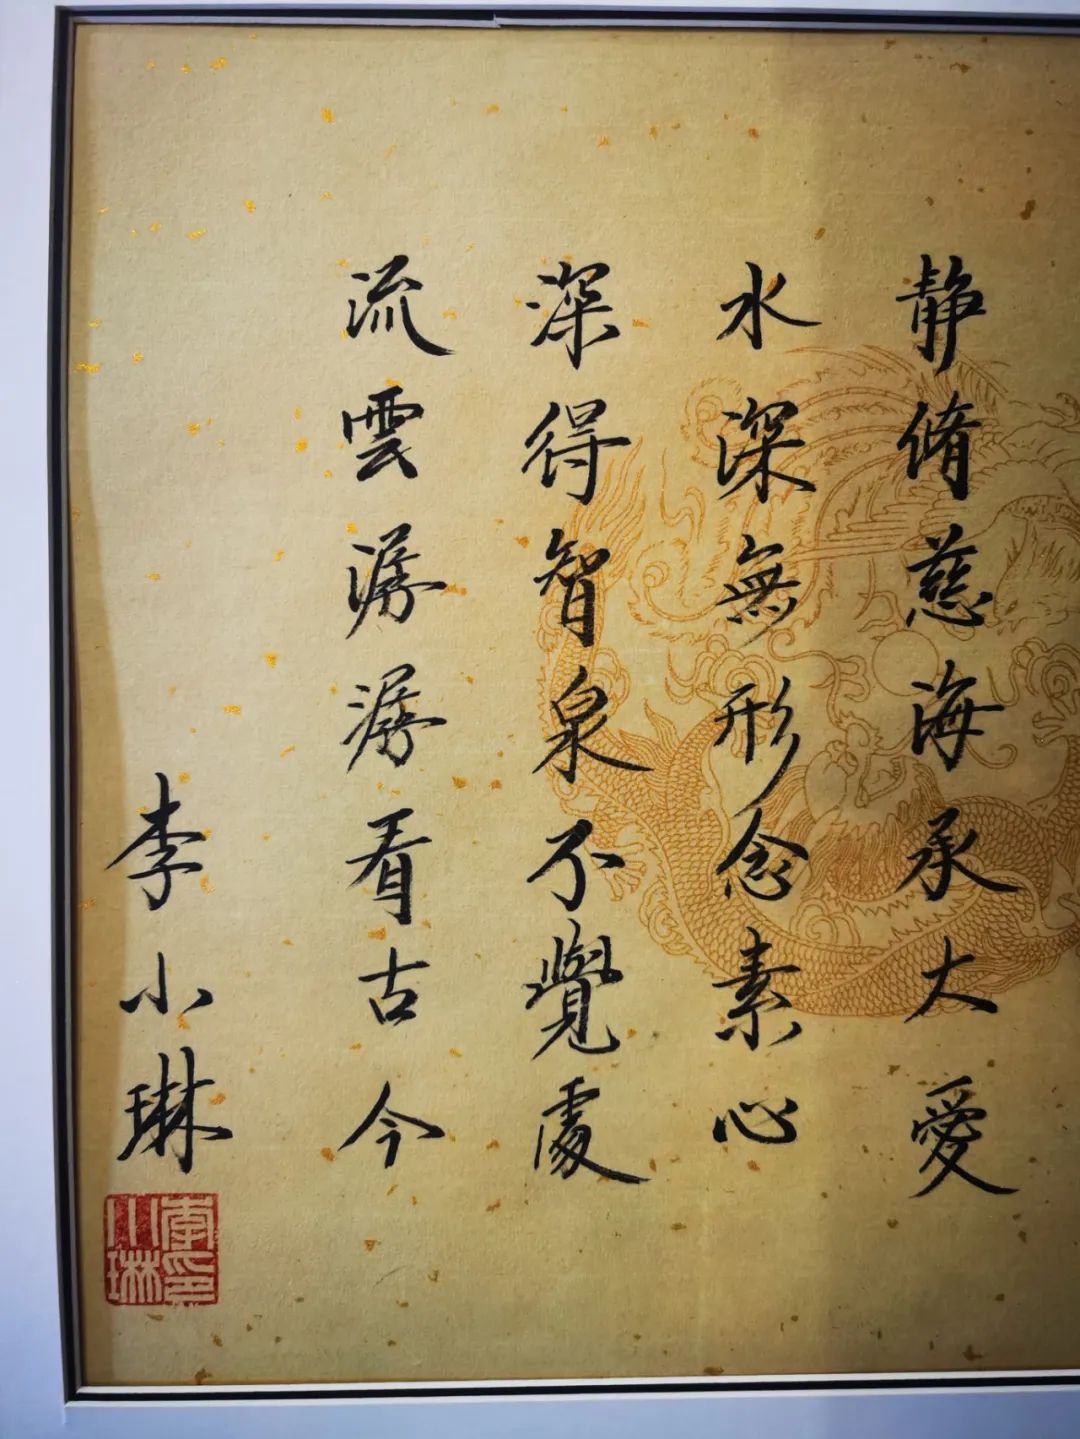 静脩慈海承大愛
水深無形念素心
深得智泉不覺處
流雲潺潺看古今
李小琳
李小琳印